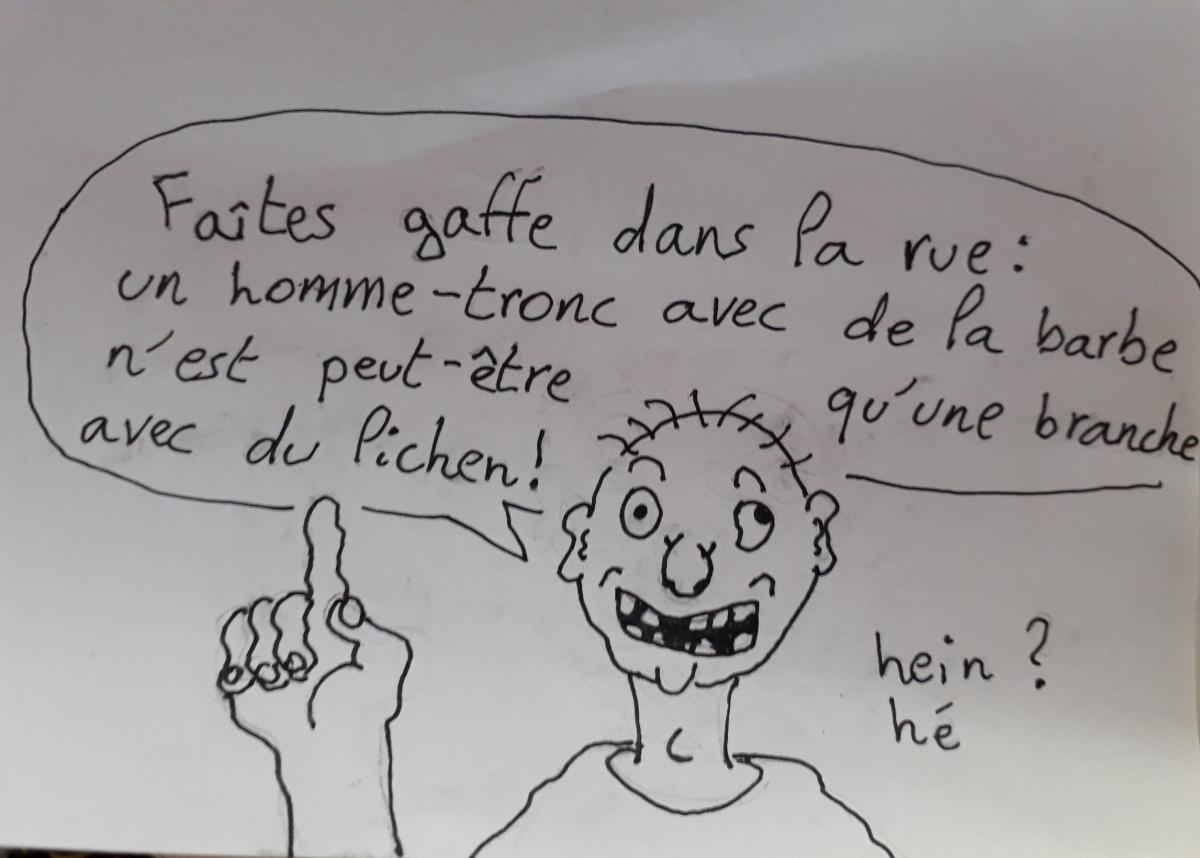 Faîtes gaffe dans la rue :
un homme-tronc avec de la barbe
n'est peut-être qu'une branche
avec du lichen !
hein ?
hé